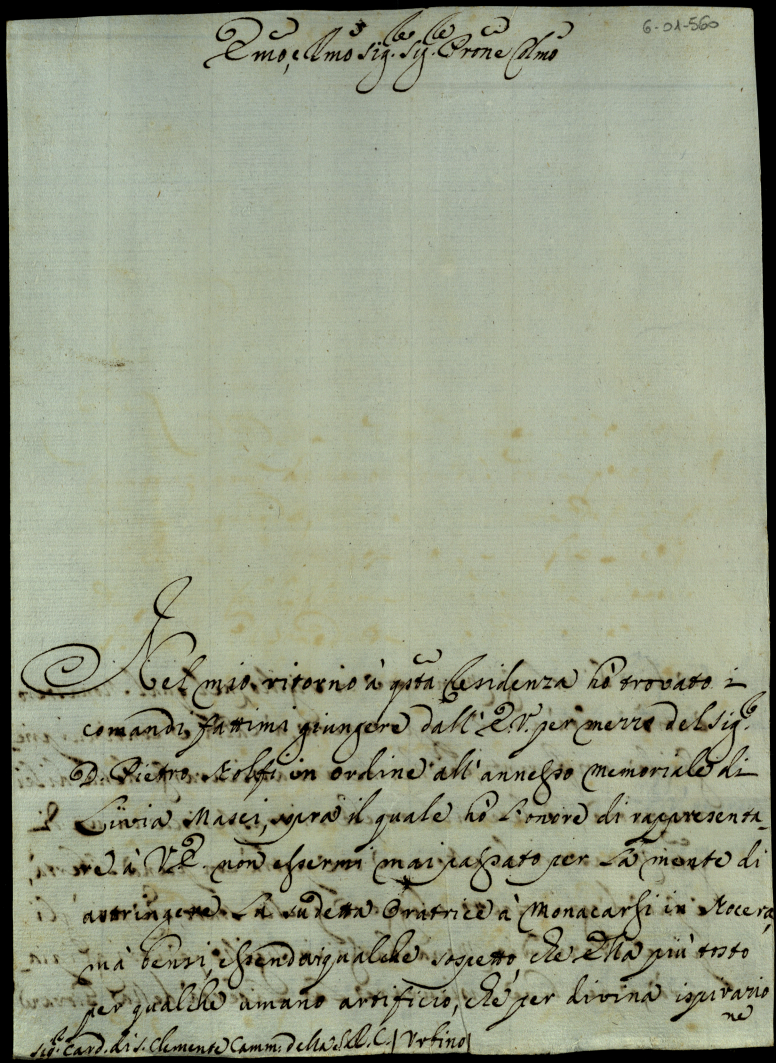 6-01-560
Emo, e Rmo Sig.re Sig.re Prone Colmo
Nel mio ritorno à qsta Residenza hò trovato i
comandi fattimi giungere dall' E.V. per mezzo del Sig.re
D. Pietro in ordine all' annesso memoriale di
Livia Masei, sopra il quale hò l'onore di rappresenta-
re à V.E. non essermi mai passato per la mente di
astringere la sudetta Oratrice à Monacarsi in Nocera,
mà bensì, essendovi qualche sospetto, che Ella più tosto
per qualche umano artificio, che per divina ispirazio
ne
Sig.r Card. di S. Clemente Camm. della S.R.C. / Urbino /